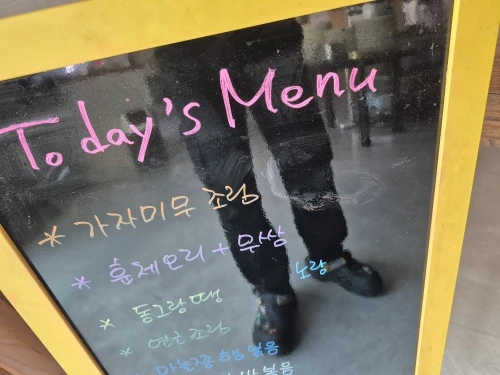 Today's Menu
* 가자미무 조림
* 훈제오리 + 무쌈
노랑
* 동그랑땡
* 연근조림
마늘쫑햄볶음
볶음